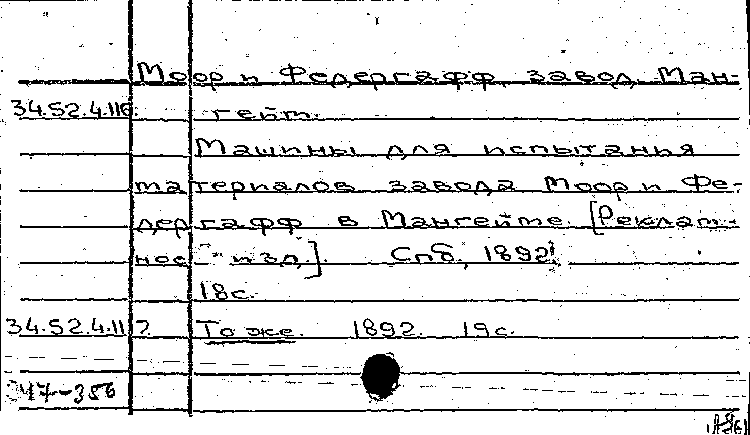 Моор и Федергафф, завод. Ман-
34.52.4.116. гейт.
Машины для испытанья
материалов завода Моор и Фе-
дергафф в Мангейме. [Реклам-
ное изд.]. Спб, 1892.
18 с.
34.52.4.117. То же. 1892. 19 с.
47-356